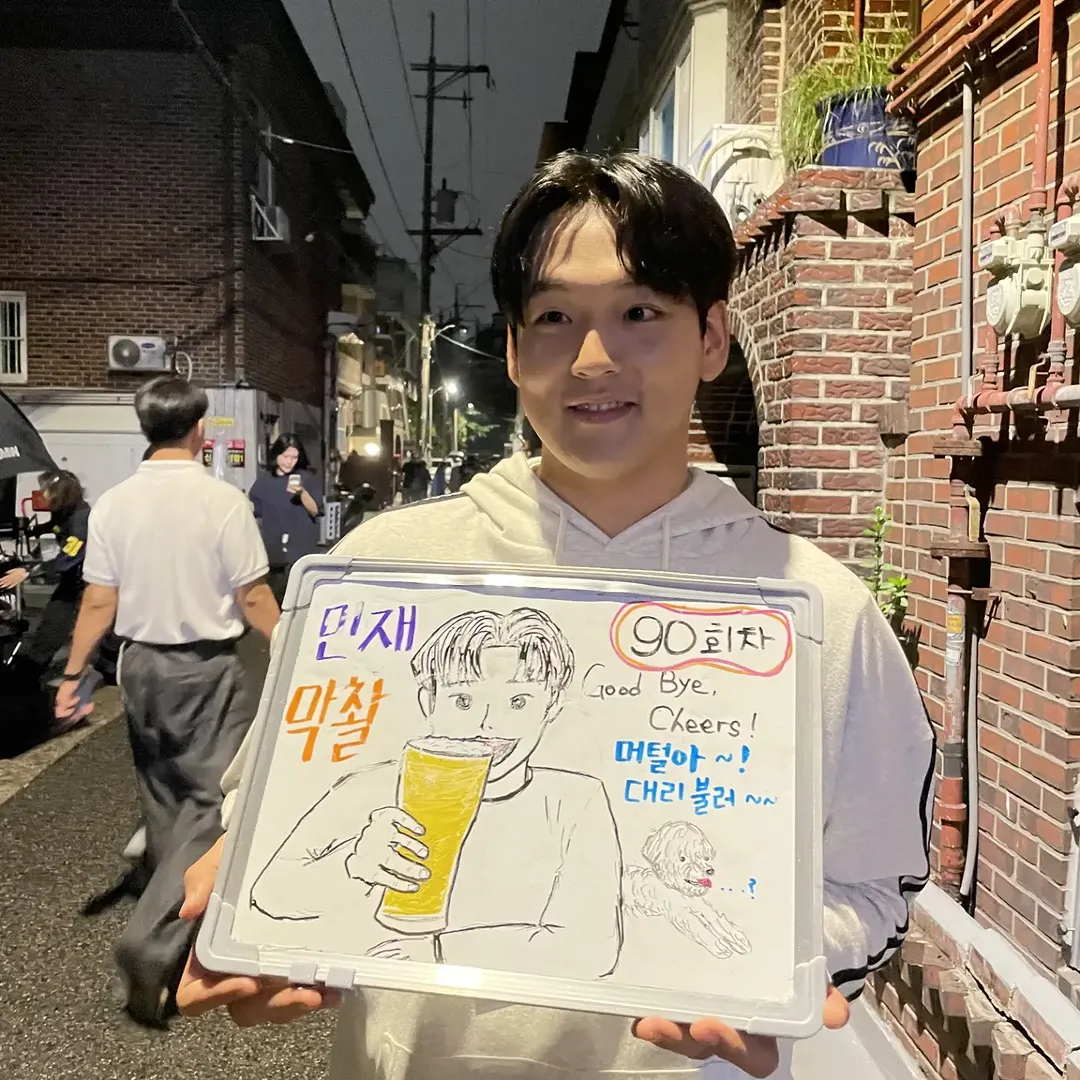 민재
막촬
90회차
Good Bye,
Cheers!
머털아 ~!
대리불러 ~~
...?